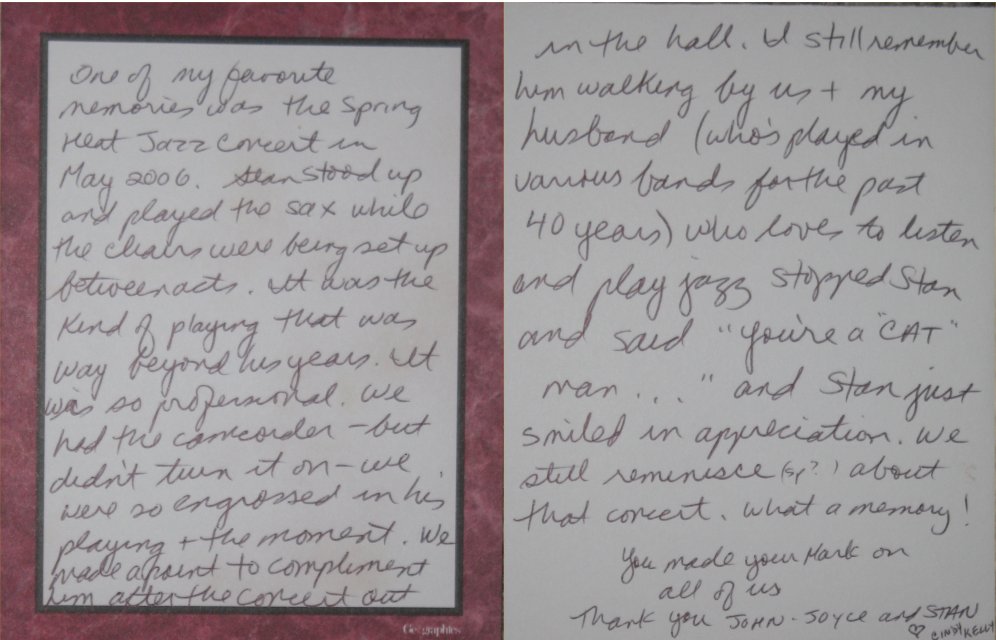 One of my favorite
memories was the Spring
Heat Jazz Concert in
May 2006. Stan stood up
and played the sax while
the chairs were being set up
between acts. It was the
kind of playing that was
way beyond his years. It
was so professional. We
had the camcorder - but
didn't turn it on - we
were so engrossed in his
playing + the moment. We
made a point to compliment
him after the concert out
Geographics
in the hall. I still remember
him walking by us + my
husband (who's played in
various bands for the past
40 years) who loves to listen
and play jazz stopped Stan
and said "you're a "CAT"
man . . . " and Stan just
smiled in appreciation. We
still reminisce (sp?) about
that concert. What a memory!
You made your Mark on
all of us
Thank you JOHN - JOYCE and STAN
♡ CINDY KELLY